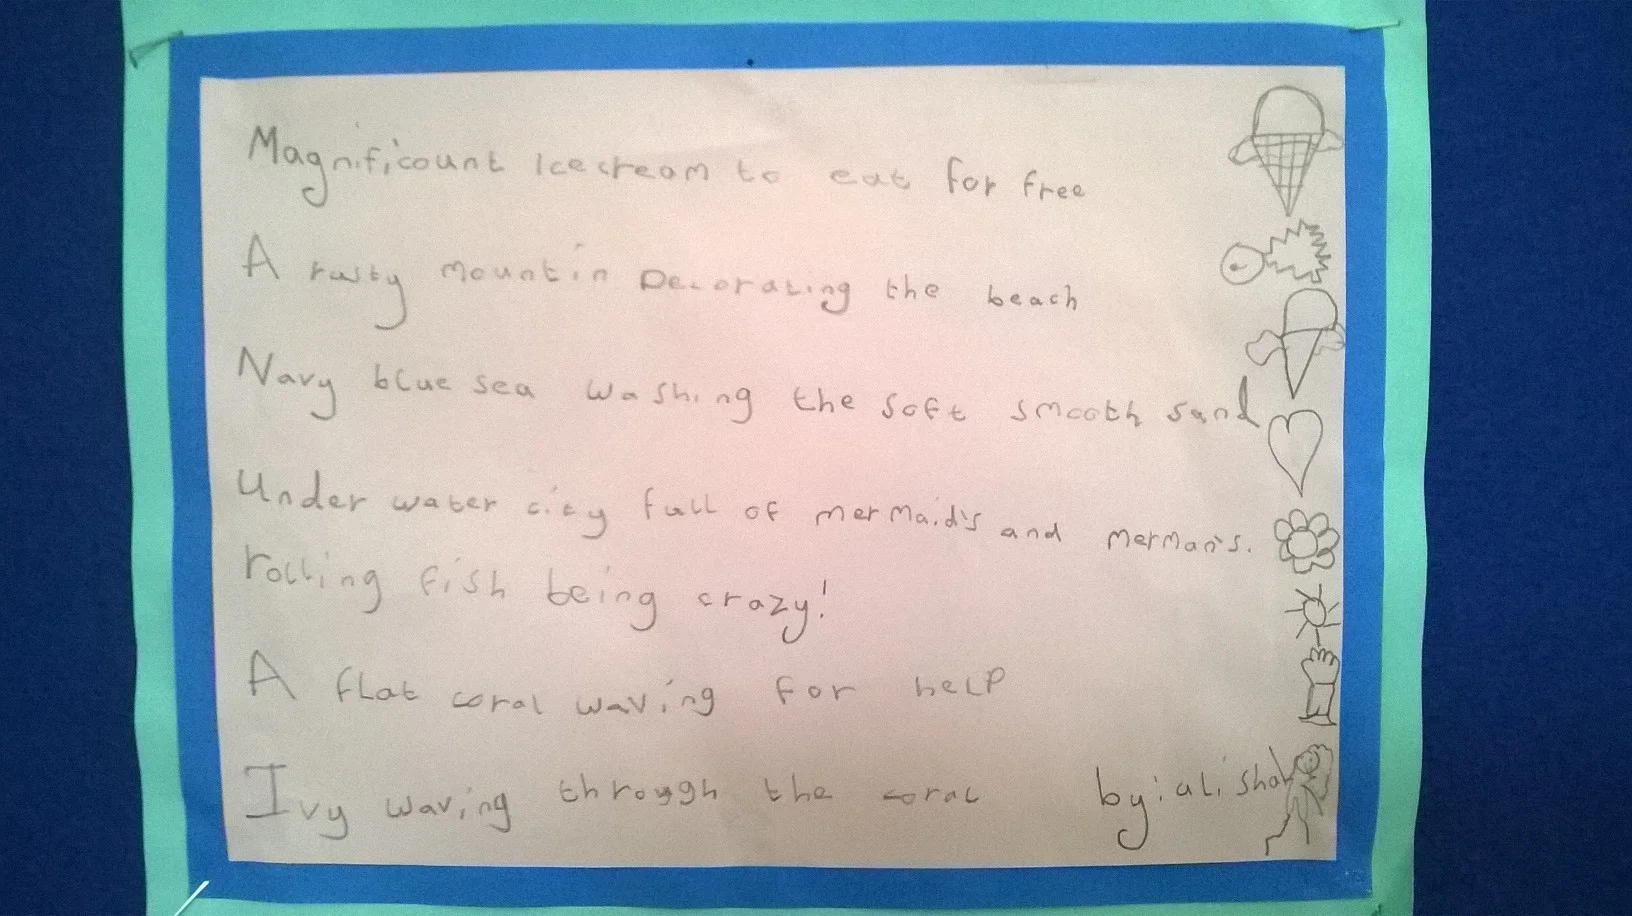 Magnificount Icecream to eat for free
A rusty mountin Decorating the beach
Navy blue sea washing the soft smooth sand
Under water city full of mermaid's and merman's.
rolling fish being crazy!
A flat coral waving for help
Ivy waving through the coral by: alishah